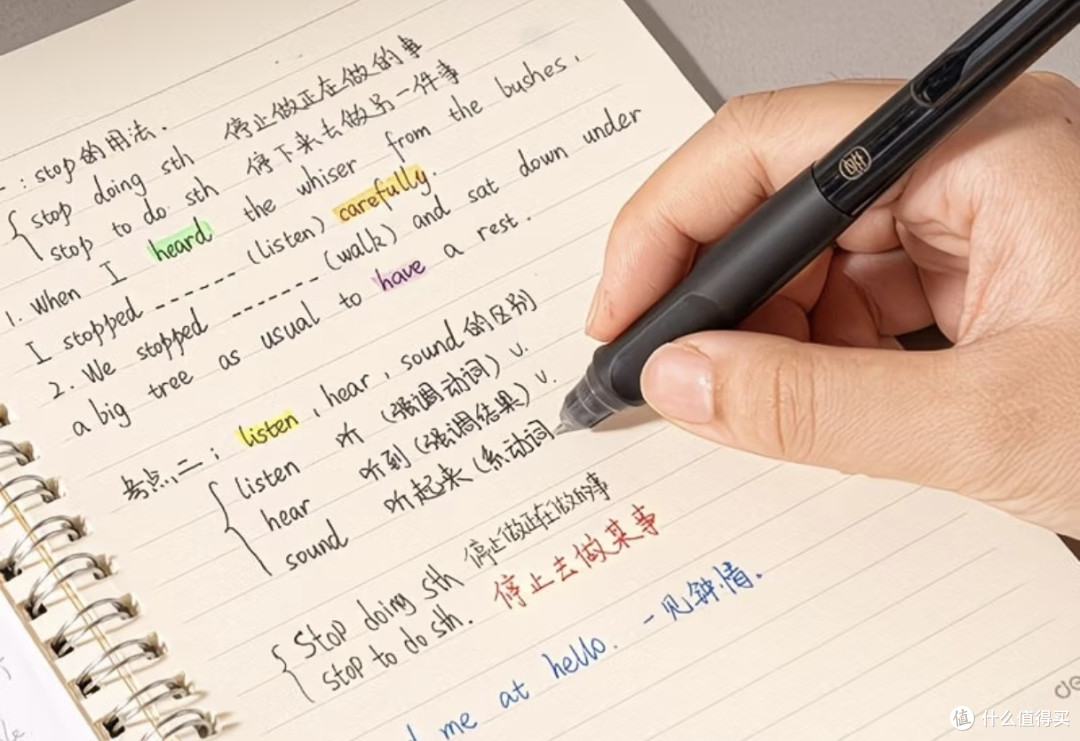 :stop的用法.
stop doing sth 停止做正在做的事
stop to do sth 停下来去做另一件事
1. When I heard the whiser from the bushes,
I stopped ------- (listen) carefully.
2. We stopped ------- (walk) and sat down under
a big tree as usual to have a rest.
考点二: listen, hear, sound的区别
listen 听 (强调动词) v.
hear 听到 (强调结果) v.
sound 听起来 (系动词
Stop doing sth 停止做正在做的事
stop to do sth. 停止去做某事
me at hello. 一见钟情.
值 什么值得买